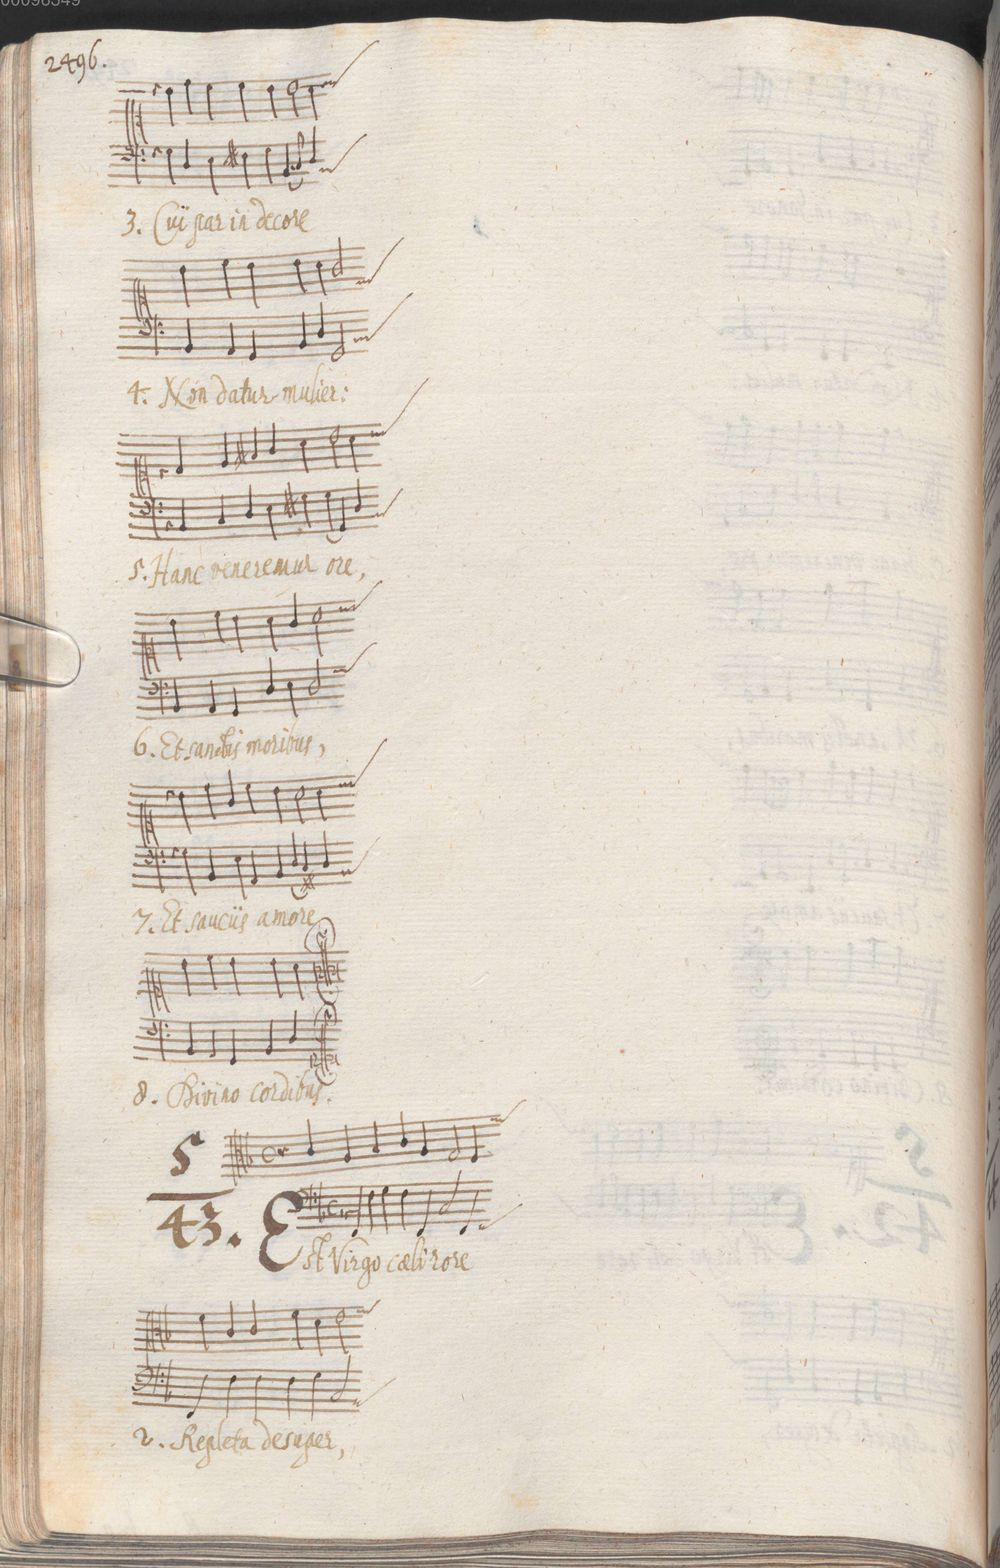 00098349
2496.
3. Cui par in decore
4. Non datur mulier:
5. Hanc veneremur ore,
6. Et sanctis moribus,
7. Et sauciis amore
8. Divino cordibus.
5
43. Est Virgo cæli rore
2. Repleta desuper,